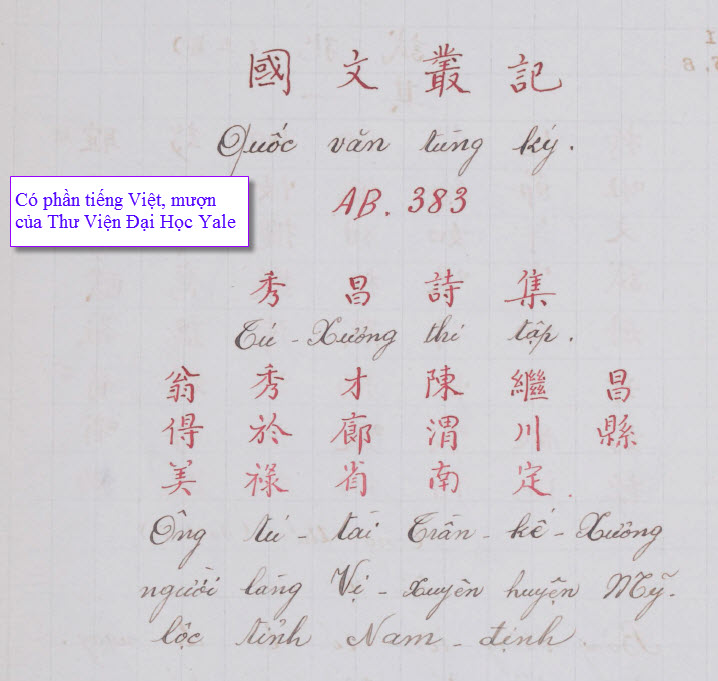 國文叢記
Quốc văn tùng ký.
Có phần tiếng Việt, mượn
của Thư Viện Đại Học Yale
AB. 383
秀昌詩集
Tú-Xương thi tập.
翁秀才陳繼昌
𠊚於廊渭川縣
美祿省南定.
Ông tú-tài Trần-kế-Xương
người làng Vị-Xuyên huyện Mỹ-
lộc tỉnh Nam-định.